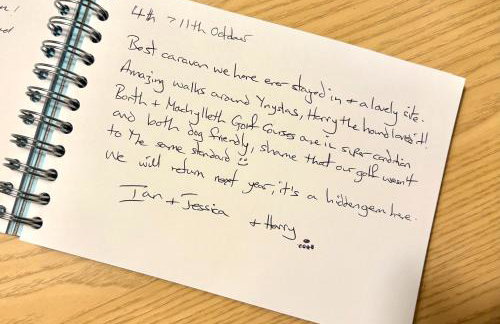 4th > 11th October
Best caravan we have ever stayed in + a lovely site.
Amazing walks around Ynyslas, Harry the hound loves it!
Borth + Machylleth Golf Courses are in super condition
and both dog friendly, shame that our golf wasn't
to the same standard
We will return next year, it's a hidden gem here.
Ian + Jessica
+ Harry